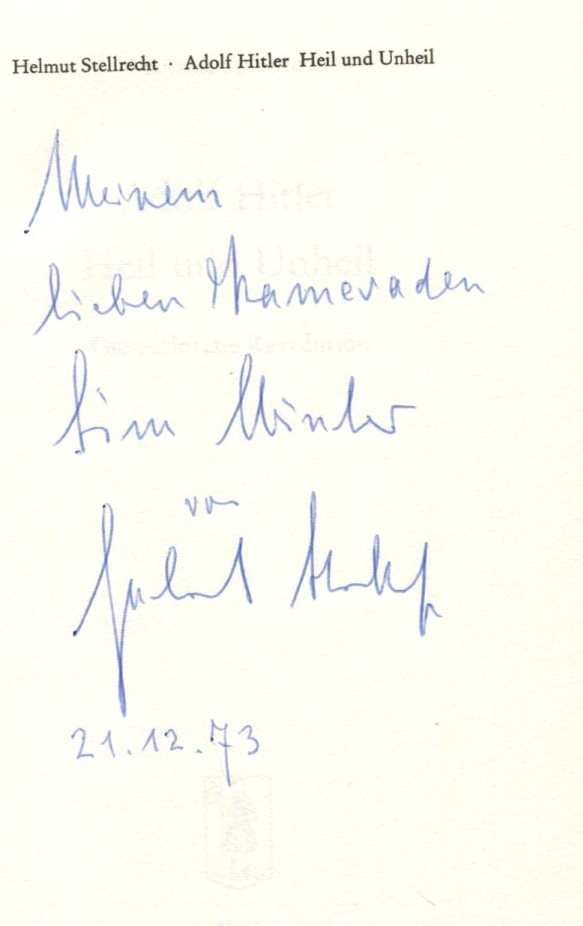 Helmut Stellrecht · Adolf Hitler Heil und Unheil
Meinem
lieben Kameraden
Winter
von
Helmut Stellrecht
21.12.73